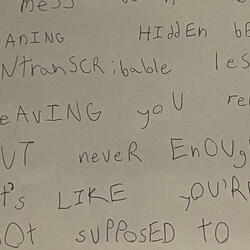 mess
ANING HIddEN bE
NtranSCRibable leS
eAVING yoU re
UT neveR ENOUg
t's LIKE yOU'R
NOt sUPPOSED TO